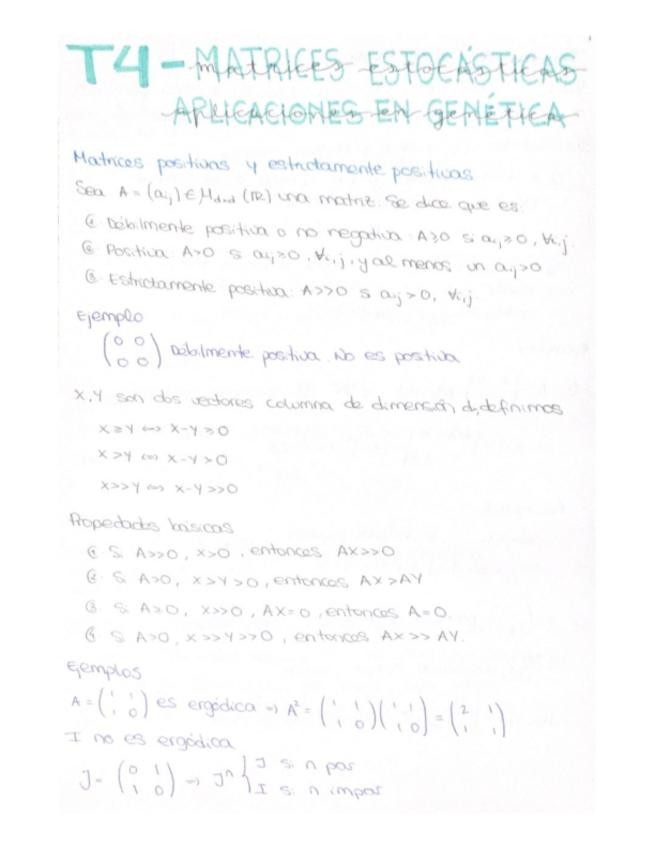 T4 - MATRICES ESTOCÁSTICAS
APLICACIONES EN GENÉTICA
Matrices positivas y estrictamente positivas
Sea A = (aij) ∈ Mdxd (R) una matriz. Se dice que es:
① Débilmente positiva o no negativa: A≥0 si aij ≥ 0, ∀i,j.
② Positiva: A>0 si aij ≥ 0, ∀i,j, y al menos un aij > 0
③ Estrictamente positiva: A>>0 si aij > 0, ∀i,j
Ejemplo
(0 0
0 0) Débilmente positiva. No es positiva
X, Y son dos vectores columna de dimensión d, definimos
X ≥ Y ⟺ X-Y ≥ 0
X > Y ⟺ X-Y > 0
X >> Y ⟺ X-Y >> 0
Propiedades básicas
① Si A>>0, X>0, entonces AX>>0
② Si A>0, X>Y>0, entonces AX > AY
③ Si A≥0, X>>0, AX=0, entonces A=0.
④ Si A>0, X>>Y>>0, entonces AX >> AY.
Ejemplos
A = (1 1
1 0) es ergódica → A² = (1 1
1 0)(1 1
1 0) = (2 1
1 1)
I no es ergódica
J = (0 1
1 0) → Jⁿ { J si n par
I si n impar